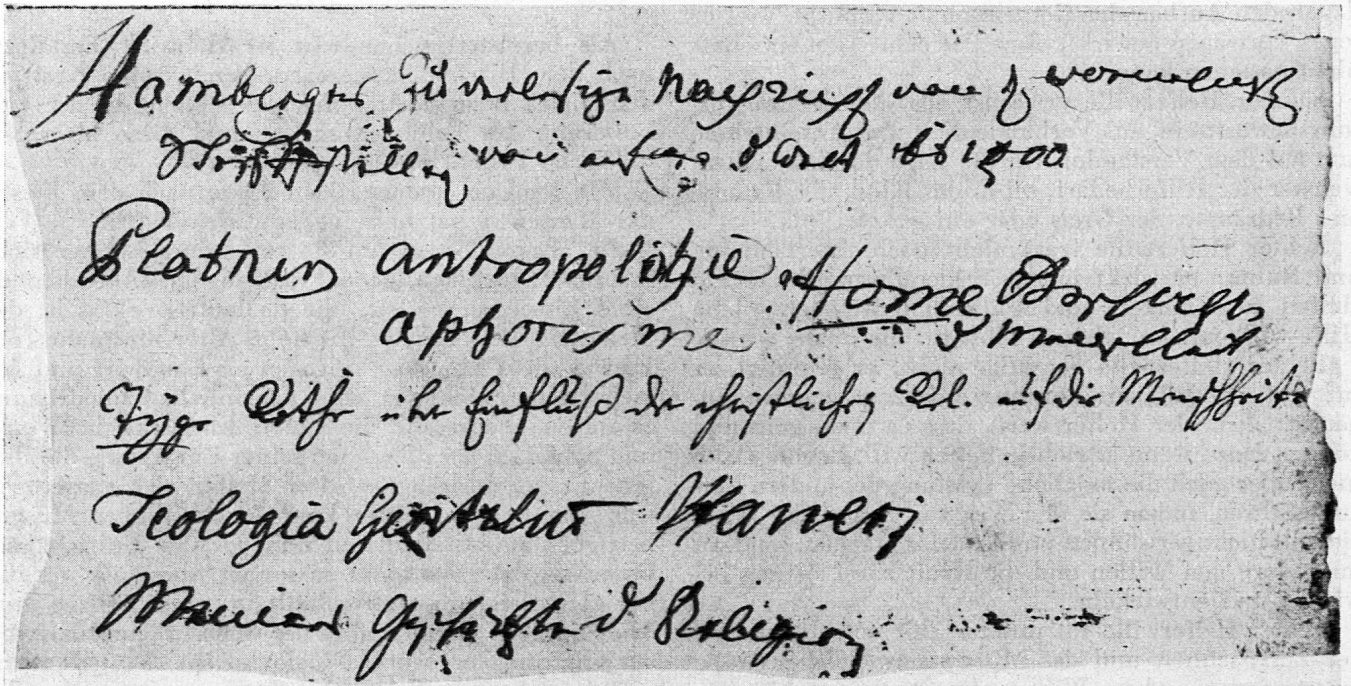 Hambergers Zuverlessige Nachricht von d vornehmst
Schriftsteller von anfang d Welt bis 1500
Platners antropologie
aphorisme
Home Versuch
d Menschheit
Tyge Rothe über Einfluß der christlichen Rel. auf die Menschheit
Teologia Gentilium
Meiners Geschichte d Religion